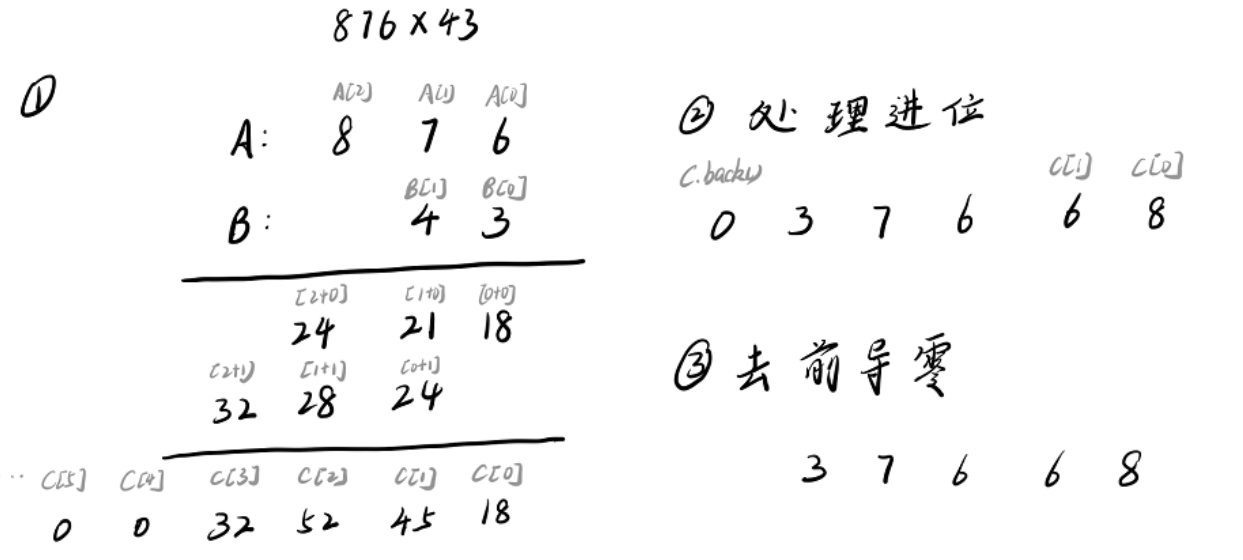 876 × 43
①
A[2] A[1] A[0]
A: 8 7 6
B[1] B[0]
B: 4 3
[2+0] [1+0] [0+0]
24 21 18
[2+1] [1+1] [0+1]
32 28 24
·· C[5] C[4] C[3] C[2] C[1] C[0]
0 0 32 52 45 18
② 处理进位
C.back() C[1] C[0]
0 3 7 6 6 8
③ 去前导零
3 7 6 6 8